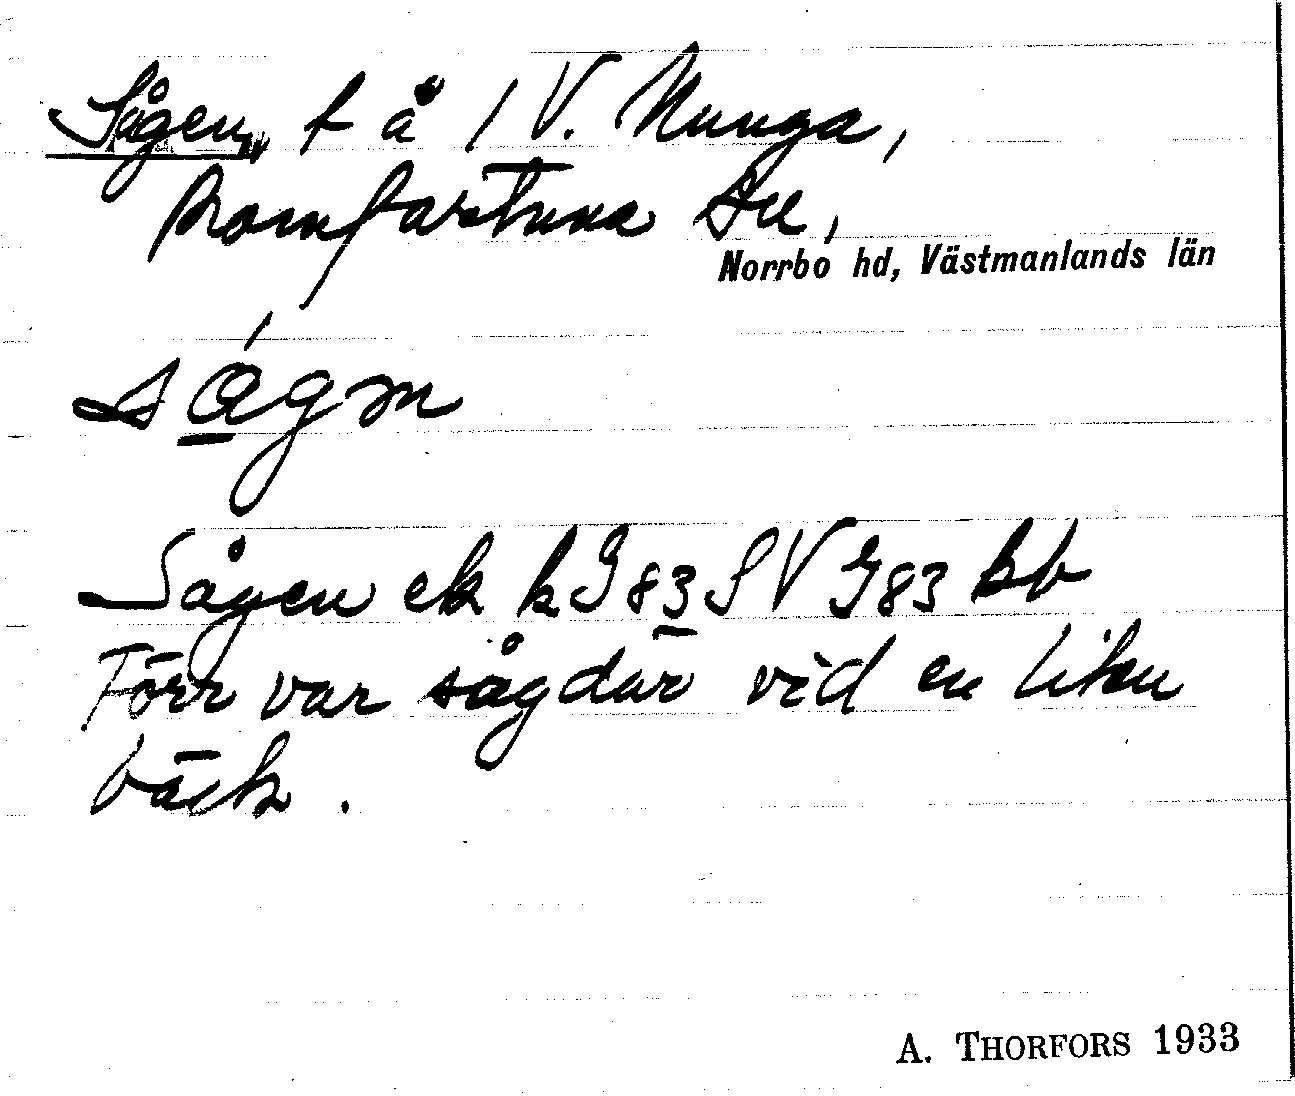 Sågen, t å / V. Nunga,
Romfartuna sn,
Norrbo hd, Västmanlands län
sågən
Sågen ek kJ83SVJ83 kb
Förr var såg där vid en liten
bäck.
A. THORFORS 1933